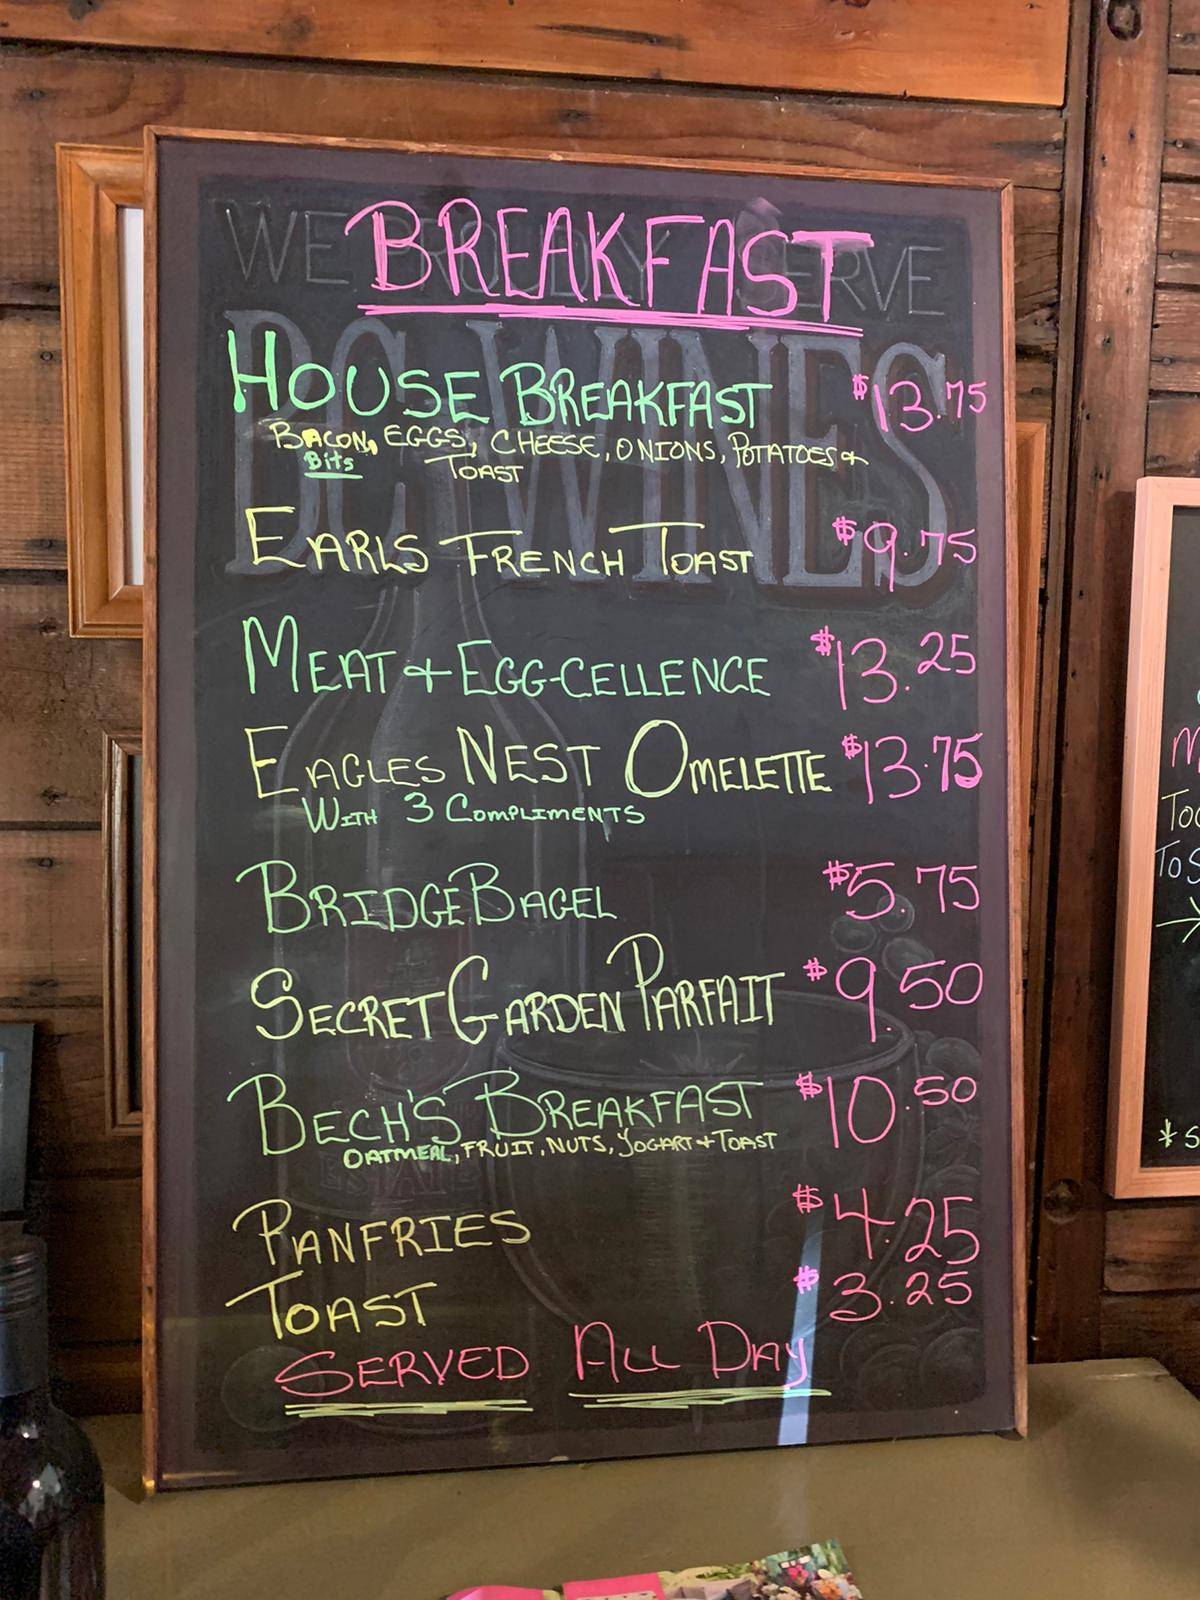 WE PROUDLY SERVE
BC WINES
BREAKFAST
HOUSE BREAKFAST $13.75
BACON, EGGS, CHEESE, ONIONS, POTATOES &
Bits TOAST
EARLS FRENCH TOAST $9.75
MEAT & EGG-CELLENCE $13.25
EAGLES NEST OMELETTE $13.75
WITH 3 COMPLIMENTS
BRIDGE BAGEL $5.75
SECRET GARDEN PARFAIT $9.50
BECH'S BREAKFAST $10.50
OATMEAL, FRUIT, NUTS, YOGART & TOAST
ESTATE
PANFRIES $4.25
TOAST $3.25
SERVED ALL DAY